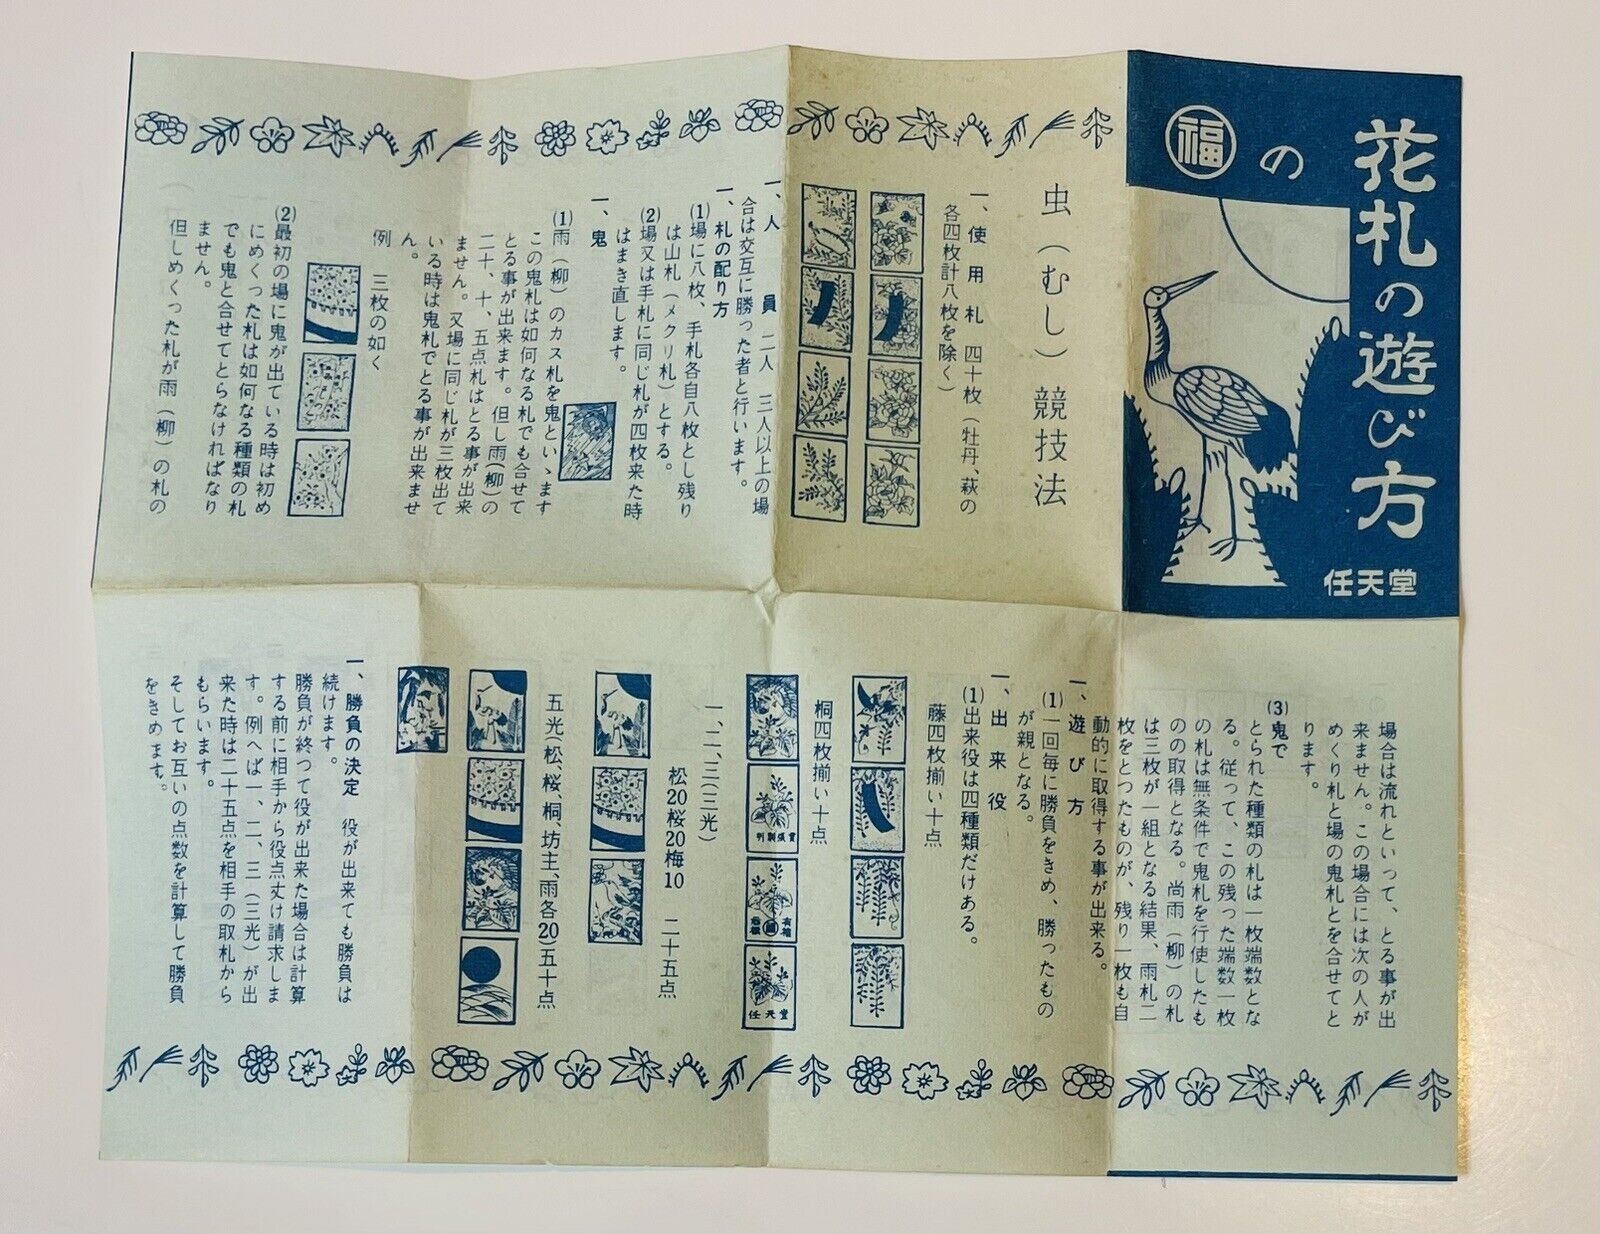 花札の遊び方
福の
任天堂
虫(むし)競技法
一、使用札 四十枚(牡丹、萩の
各四枚計八枚を除く)
一、人員 二人 三人以上の場
合は交互に勝った者と行います。
一、札の配り方
(1)場に八枚、手札各自八枚とし残り
は山札(メクリ札)とする。
(2)場又は手札に同じ札が四枚来た時
はまき直します。
一、鬼
(1)雨(柳)のカス札を鬼といゝます
この鬼札は如何なる札でも合せて
とる事が出来ます。但し雨(柳)の
二十、十、五点札はとる事が出来
ません。又場に同じ札が三枚出て
いる時は鬼札でとる事が出来ませ
ん。
例 三枚の如く
(2)最初の場に鬼が出ている時は初め
にめくった札は如何なる種類の札
でも鬼と合せてとらなければなり
ません。
但しめくった札が雨(柳)の札の
場合は流れといって、とる事が出
来ません。この場合には次の人が
めくり札と場の鬼札とを合せてと
ります。
(3)鬼で
とられた種類の札は一枚端数とな
る。従って、この残った端数一枚
の札は無条件で鬼札を行使したも
のの取得となる。尚雨(柳)の札
は三枚が一組となる結果、雨札二
枚をとつたものが、残り一枚も自
動的に取得する事が出来る。
一、遊び方
(1)一回毎に勝負をきめ、勝ったもの
が親となる。
一、出来役
(1)出来役は四種類だけある。
藤四枚揃い十点
桐四枚揃い十点
任天堂
一、二、三(三光)
松20桜20梅10 二十五点
五光(松、桜、桐、坊主、雨各20)五十点
一、勝負の決定 役が出来ても勝負は
続けます。
勝負が終つて役が出来た場合は計算
する前に相手から役点丈け請求しま
す。例へば一、二、三(三光)が出
来た時は二十五点を相手の取札から
もらいます。
そしてお互いの点数を計算して勝負
をきめます。